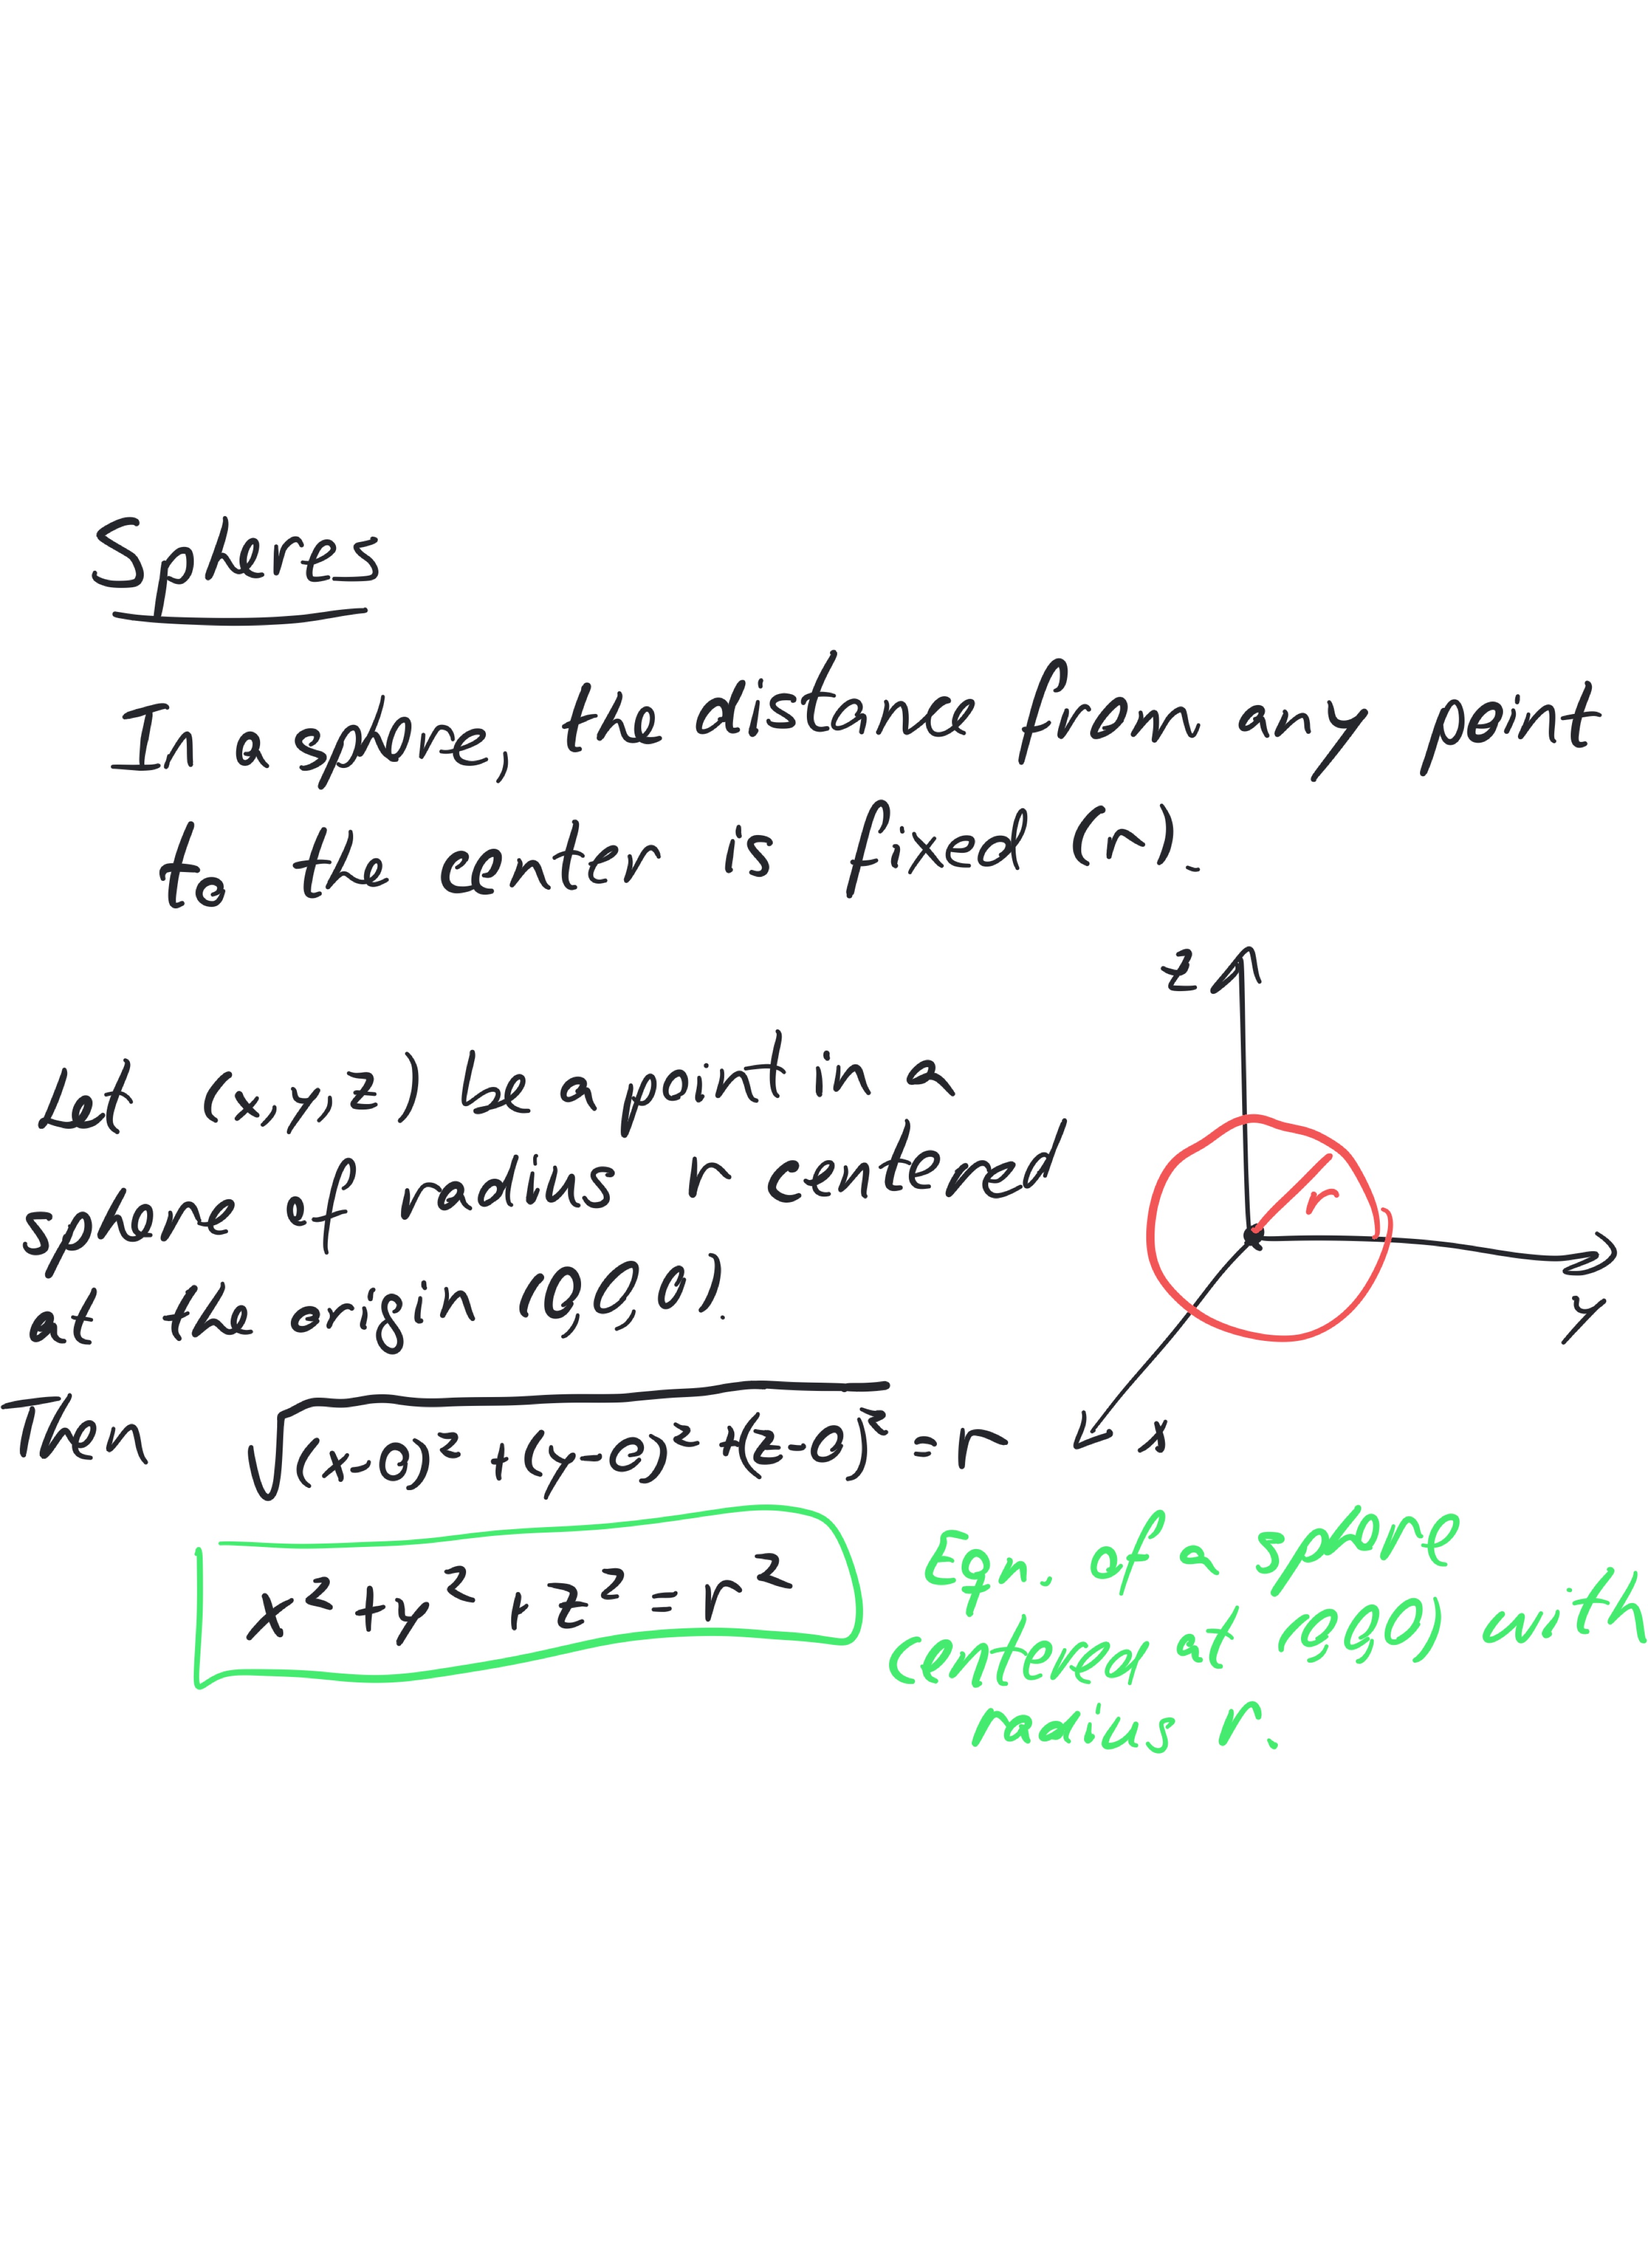 Spheres
In a sphere, the distance from any point
to the center is fixed (r).
z
Let (x, y, z) be a point in a
sphere of radius r centered
at the origin (0,0,0).
r
y
x
Then √((x-0)² + (y-0)² + (z-0)²) = r
x² + y² + z² = r²
Eqn. of a sphere
centered at (0,0,0) with
radius r.